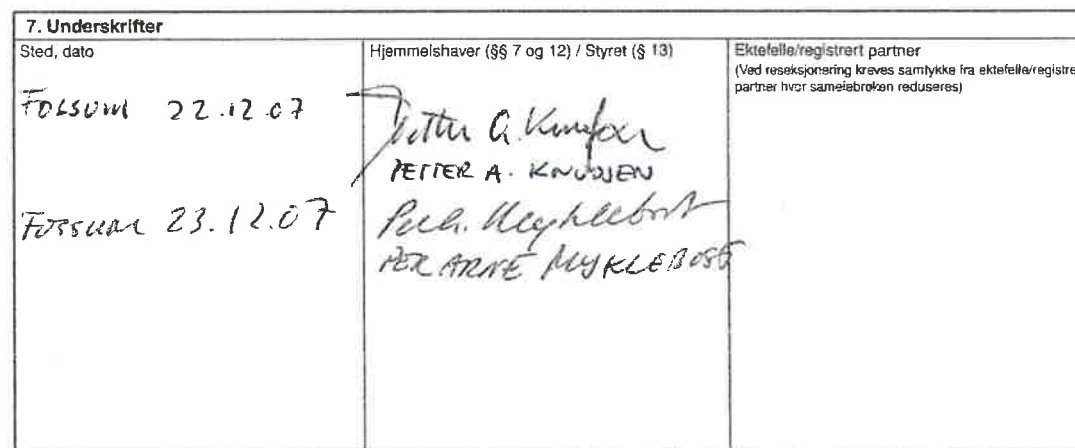 7. Underskrifter
Sted, dato
Hjemmelshaver (§§ 7 og 12) / Styret (§ 13)
Ektefelle/registrert partner
(Ved reseksjonering kreves samtykke fra ektefelle/registre
partner hvor sameiebrøken reduseres)
22.12.07
Petter A. Knudsen
PETTER A. KNUDSEN
23.12.07
PER ARNE MYKLEBOST